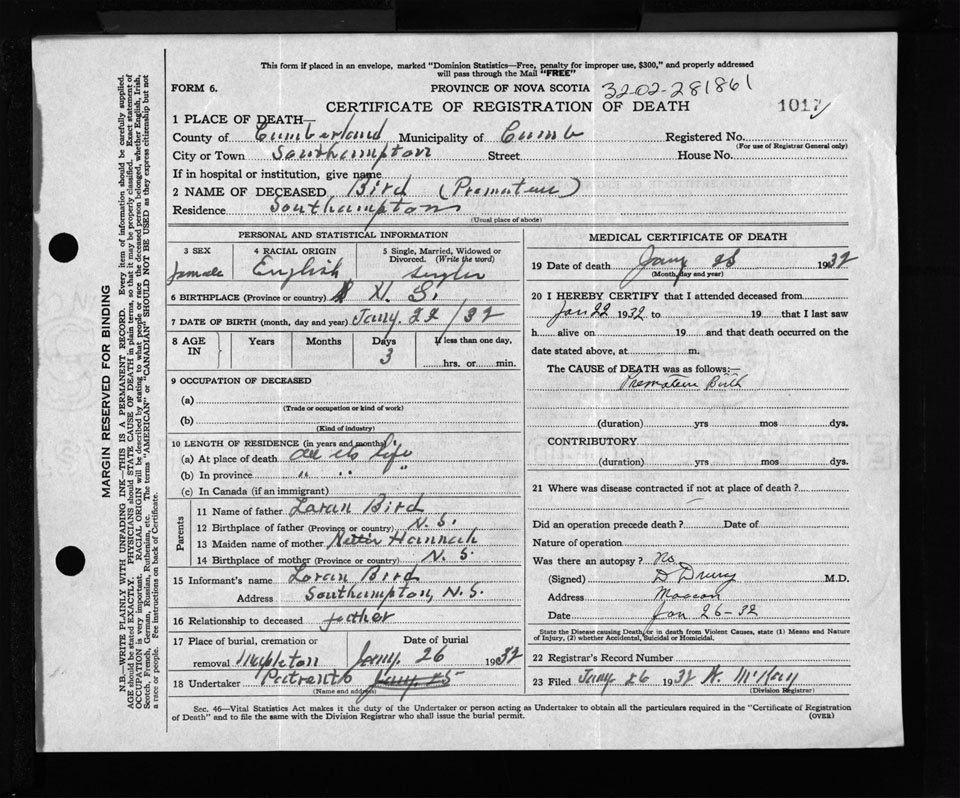 This form if placed in an envelope, marked "Dominion Statistics—Free, penalty for improper use, $300," and properly addressed
will pass through the Mail "FREE"
FORM 6. PROVINCE OF NOVA SCOTIA 32-02-281861
CERTIFICATE OF REGISTRATION OF DEATH 1017
1 PLACE OF DEATH—
County of Cumberland Municipality of Cumb Registered No.
(For use of Registrar General only)
City or Town Southampton Street House No.
If in hospital or institution, give name
2 NAME OF DECEASED Bird (Premature)
Residence Southampton
(Usual place of abode)
PERSONAL AND STATISTICAL INFORMATION
3 SEX 4 RACIAL ORIGIN 5 Single, Married, Widowed or
Divorced. (Write the word)
female English Single
6 BIRTHPLACE (Province or country) N. S.
7 DATE OF BIRTH (month, day and year) Jany. 22 / 32
8 AGE IN Years Months Days If less than one day,
3 hrs. or min.
9 OCCUPATION OF DECEASED
(a)
(Trade or occupation or kind of work)
(b)
(Kind of industry)
10 LENGTH OF RESIDENCE (in years and months)
(a) At place of death all its life
(b) In province " " "
(c) In Canada (if an immigrant)
Parents
11 Name of father Loran Bird
12 Birthplace of father (Province or country) N. S.
13 Maiden name of mother Nettie Hannah
14 Birthplace of mother (Province or country) N. S.
15 Informant's name Loran Bird
Address Southampton, N.S.
16 Relationship to deceased father
17 Place of burial, cremation or Date of burial
removal Mapleton Jany. 26 1932
18 Undertaker Parents Jany. 25
(Name and address)
MEDICAL CERTIFICATE OF DEATH
19 Date of death Jany 25 1932
(Month, day and year)
20 I HEREBY CERTIFY that I attended deceased from
Jan 22 1932 to 19 that I last saw
h alive on 19 and that death occurred on the
date stated above, at m.
The CAUSE of DEATH was as follows:—
Premature Birth
(duration) yrs mos dys.
CONTRIBUTORY
(duration) yrs mos dys.
21 Where was disease contracted if not at place of death?
Did an operation precede death? Date of
Nature of operation
Was there an autopsy? No
(Signed) D Drury M.D.
Address Maccan
Date Jan 26-32
State the Disease causing Death, or in death from Violent Causes, state (1) Means and Nature
of Injury, (2) whether Accidental, Suicidal or Homicidal.
22 Registrar's Record Number
23 Filed Jany 26 1932 H. McKay
(Division Registrar)
Sec. 46—Vital Statistics Act makes it the duty of the Undertaker or person acting as Undertaker to obtain all the particulars required in the "Certificate of Registration
of Death" and to file the same with the Division Registrar who shall issue the burial permit. (OVER)
MARGIN RESERVED FOR BINDING
N.B.—WRITE PLAINLY WITH UNFADING INK—THIS IS A PERMANENT RECORD. Every item of information should be carefully supplied.
AGE should be stated EXACTLY. PHYSICIANS should STATE CAUSE OF DEATH in plain terms, so that it may be properly classified. Exact statement of
OCCUPATION is very important. RACIAL ORIGIN will be described by stating to what people or race the deceased person belonged, whether English, Irish,
Scotch, French, German, Russian, Ruthenian, etc. The terms "AMERICAN" or "CANADIAN" SHOULD NOT BE USED as they express citizenship but not
a race or people. Fee instructions on back of Certificate.